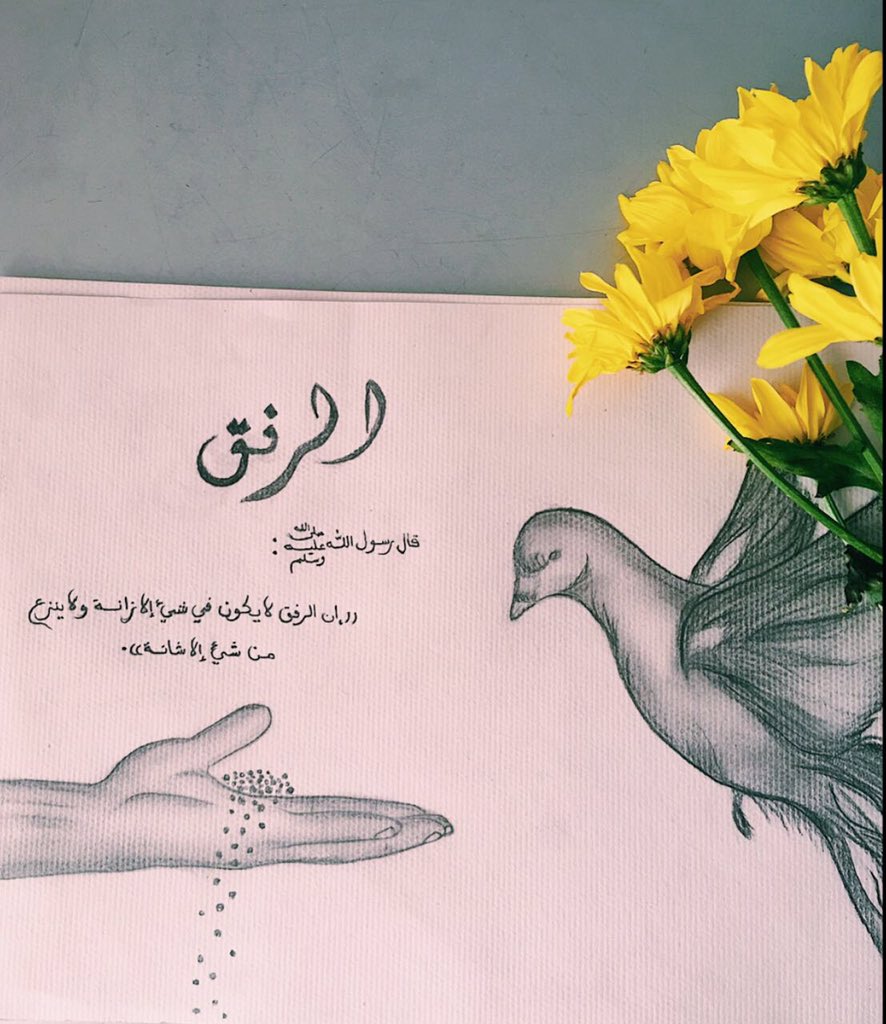 الرفق
قال رسول الله صلى الله عليه وسلم :
((إن الرفق لا يكون في شيءٍ إلا زانة ولا ينزع
من شيءٍ إلا شانة)).